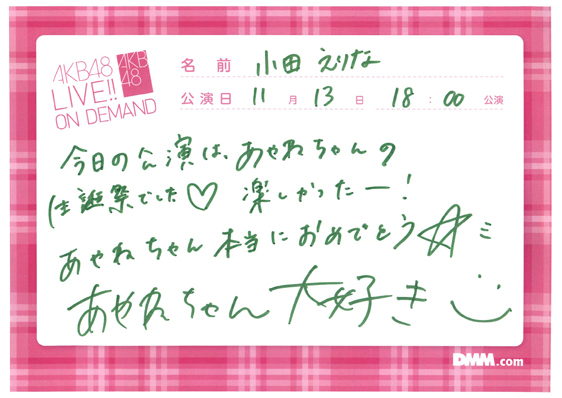 AKB48
LIVE!!
ON DEMAND
AKB
48
名前 小田えりな
公演日 11月13日 18:00公演
今日の公演は、あやねちゃんの
生誕祭でした♡ 楽しかったー!
あやねちゃん本当におめでとう☆ミ
あやねちゃん大好き
DMM.com